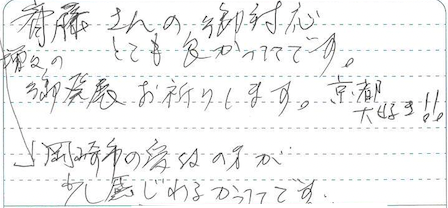 斉藤さんの御対応
とても良かったです。
増々の
御発展お祈りします。京都
大好き!!
岡崎市の受付の方が
少し感じわるかったです。